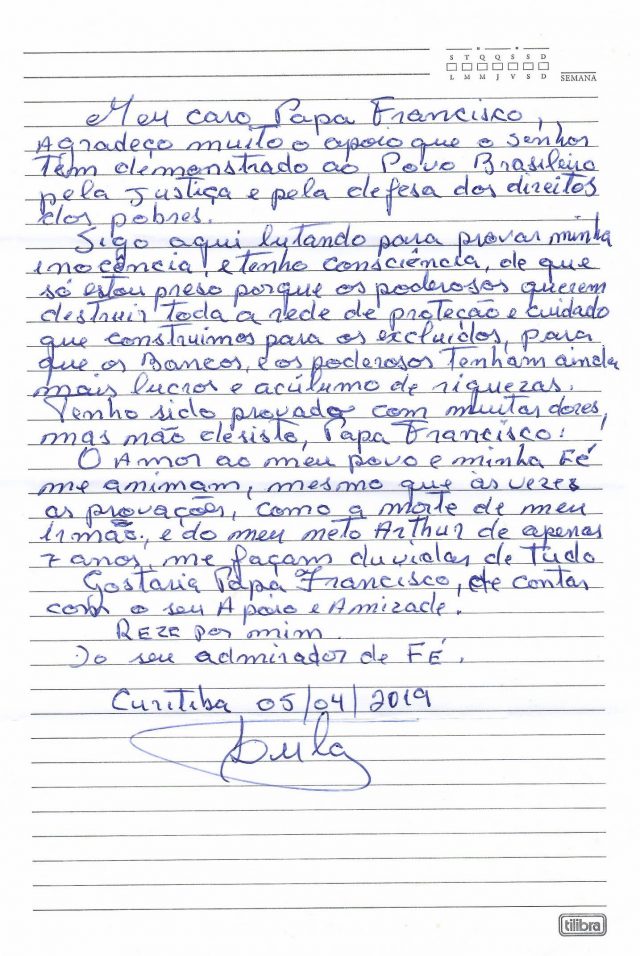 S T Q Q S S D
L M M J V S D
SEMANA
Meu caro Papa Francisco,
Agradeço muito o apoio que o senhor
tem demonstrado ao Povo Brasileiro
pela Justiça e pela defesa dos direitos
dos pobres.
Sigo aqui lutando para provar minha
inocência, e tenho consciência, de que
só estou preso porque os poderosos querem
destruir toda a rede de proteção e cuidado
que construimos para os excluidos, para
que os Bancos, e os poderosos tenham ainda
mais lucros e acúlumo de riquezas.
Tenho sido provado com muitas dores,
mas não desisto, Papa Francisco!
O Amor ao meu povo e minha Fé
me animam, mesmo que às vezes
as provações, como a morte de meu
irmão, e do meu neto Arthur de apenas
7 anos, me façam duvidar de tudo
Gostaria Papa Francisco, de contar
com o seu Apoio e Amizade.
Reze por mim.
Do seu admirador de FÉ.
Curitiba 05/04/2019
Lula
tilibra